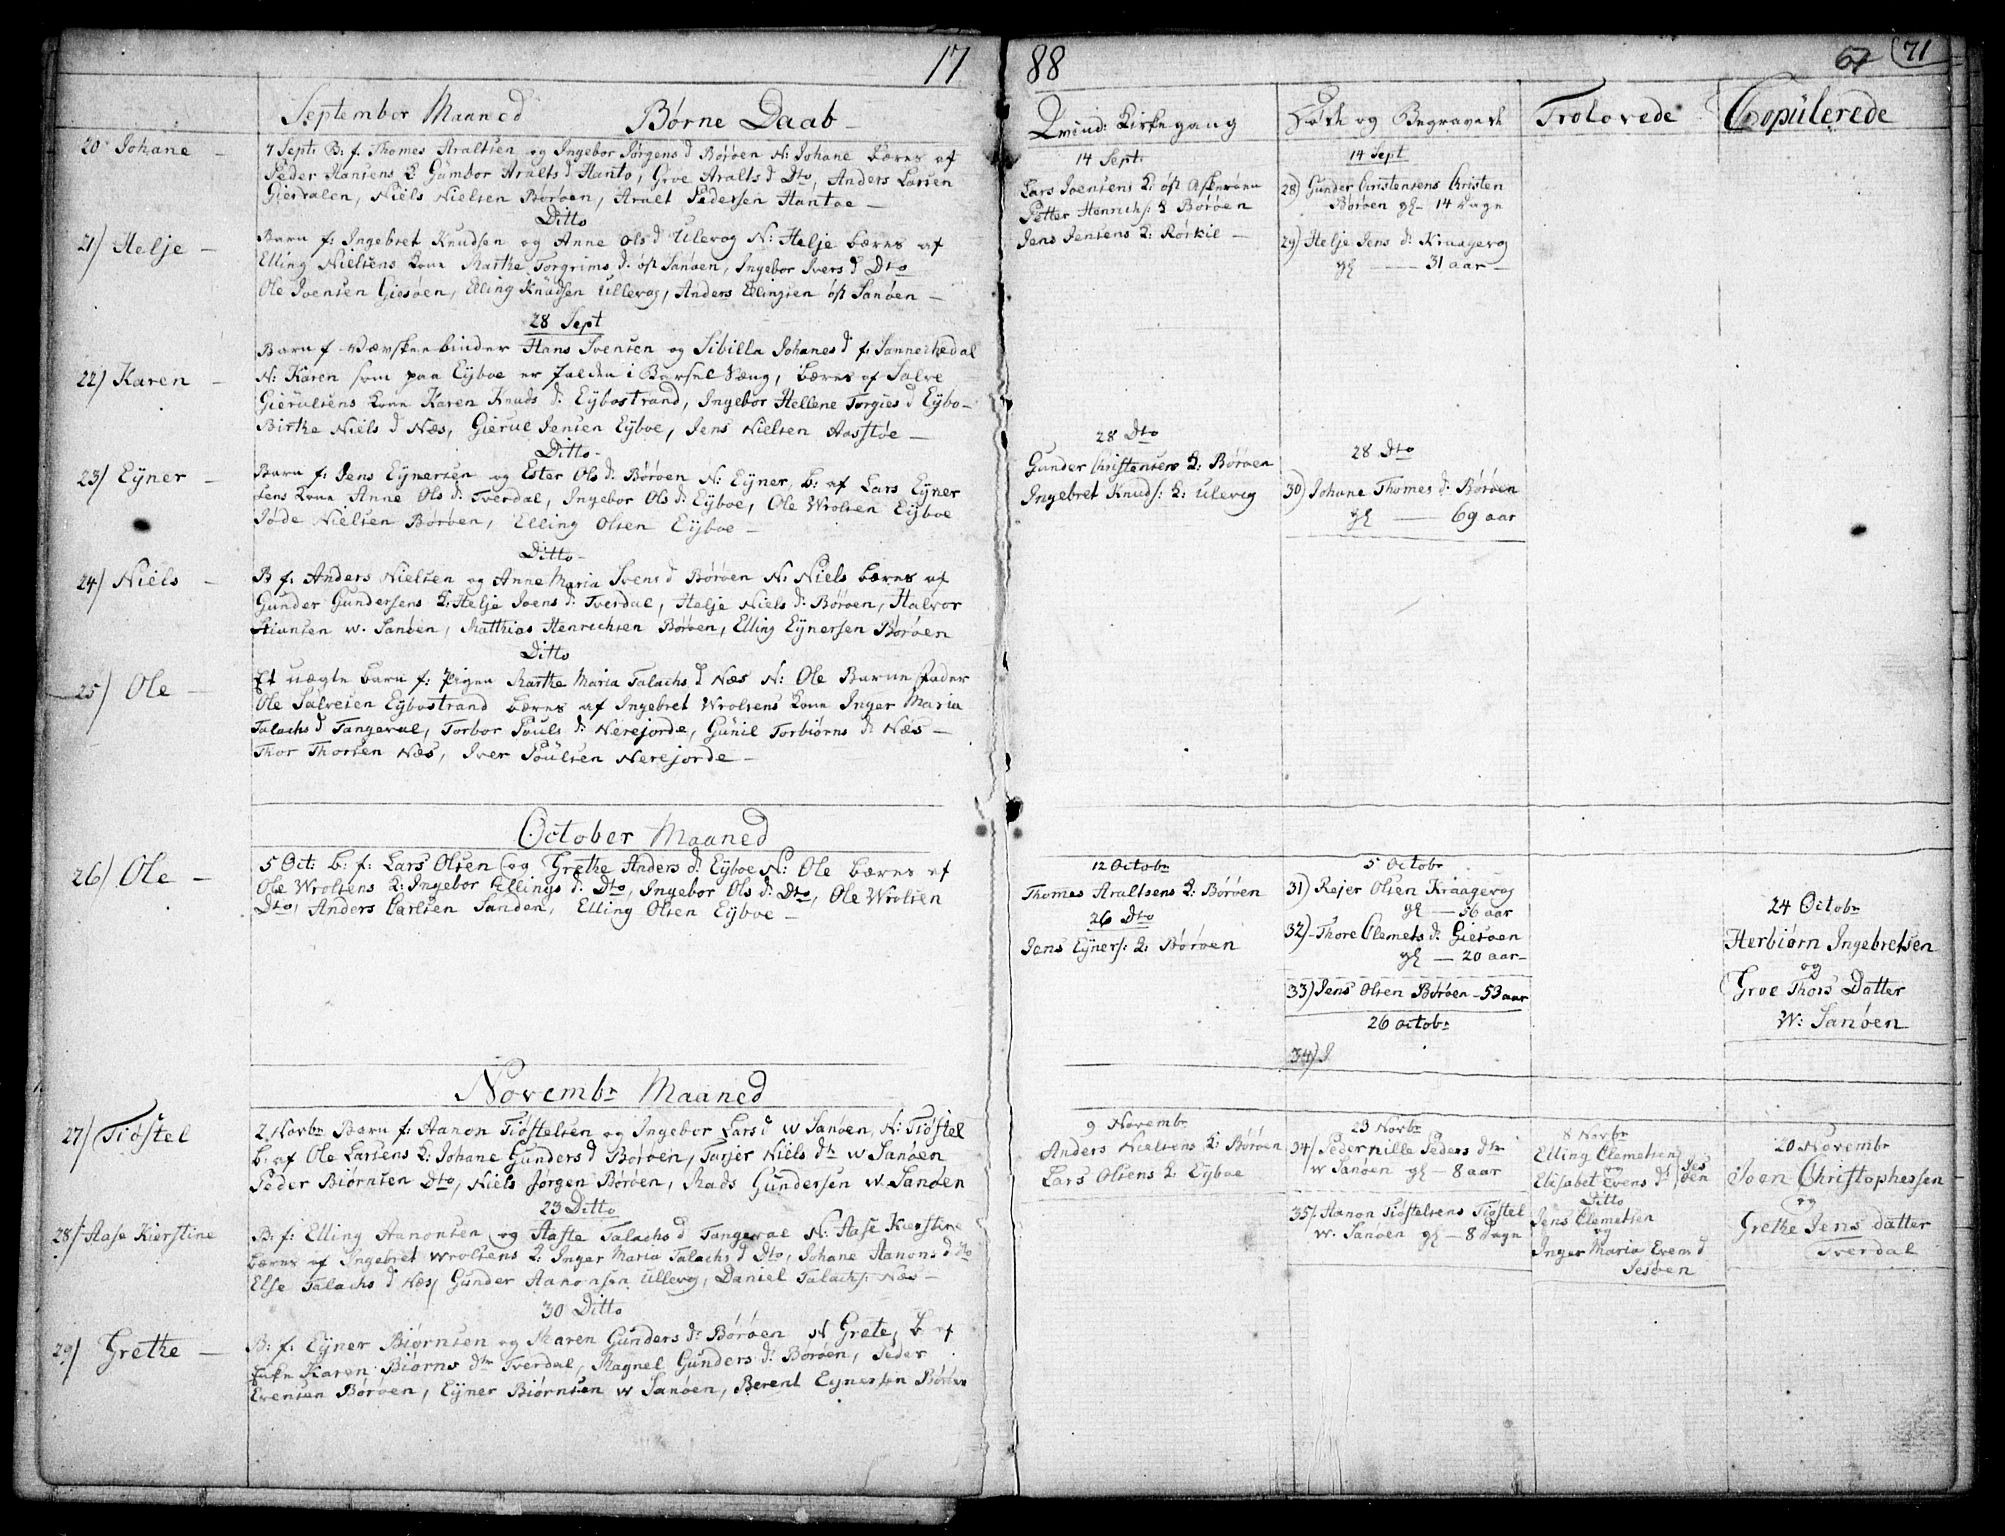 17
September Maaned Børne Daab
20 Johane — 7 Sept: B: f. Thomes Araltsen og Ingebor Jørgens d Børøen N: Johane bæres af
Peder Hansens K Gumbor Aralts d Hanto, Groe Aralts d Dto, Anders Larsen
Giesvalen, Niels Nielsen Børøen, Aralt Pedersen Hantoe —
Ditto
21) Helje — Barn f: Ingebret Knudsen og Anne Ols d Ulevog N: Helje bæres af
Elling Nielsens Kone Marthe Torgrims d: øst Sanøen, Ingebor Ivers d Dto
Ole Ivensen Giesøen, Elling Knudsen Ullevog, Anders Ellingsen øst Sanøen —
28 Sept
Barn f Vævskeebinder Hans Svensen og Sibilla Johanes d f: Sannechedal
22) Karen — N: Karen som paa Eyboe er falden i Barsel Sæng, bæres af Salve
Gierulsens Kone Karen Knuds d: Eybostrand, Ingebor Hellene Torgies d Eybo—
Birthe Niels d Næs, Gierul Jensen Eyboe, Jens Nielsen Aastøe —
Ditto—
23) Eyner — Barn f: Jens Eynersen og Ester Ols d: Børøen N: Eyner, b: af Lars Eyner
sens Kone Anne Ols d: Tverdal, Ingebor Ols d: Eyboe, Ole Wrolsen Eyboe
Jøde Nielsen Børøen, Elling Olsen Eyboe —
Ditto—
24) Niels — B f: Anders Nielsen og Anne Maria Svens d Børøen N: Niels bæres af
Gunder Gundersens K: Helje Joens d: Tverdal, Helje Niels d: Børøen, Halvor
Stiansen w. Sanøen, Matthias Henrichsen Børøen, Elling Eynersen Børøen
Ditto
25) Ole — Et uægte barn f: Pigen Marthe Maria Talachs d Næs N: Ole Barne fader
Ole Salvesen Eybostrand bæres af Ingebret Wrolsens Kone Inger Maria
Talachs d Tangeval, Torbor Pouls d: Nerejorde, Gunil Torbiørns d Næs —
Thor Thorsen Næs, Iver Poulsen Nerejorde —
October Maaned
26) Ole — 5 Oct: b: f: Lars Olsen og Grethe Anders d: Eyboe N: Ole bæres af
Ole Wrolsens K: Ingebor Ellings d: Dto, Ingebor Ols d: Dto, Ole Wrolsen
Dto, Anders Carlsen Sanden, Elling Olsen Eyboe —
Novembr Maaned
27) Tiøstel 2 Novbr Barn f: Aanon Tiøstelsen og Ingebor Lars d w Sanøen, N: Tiøstel
b: af Ole Larsens K: Johane Gunders d Børøen, Tarjer Niels dtr w Sanøen
Peder Biørnsen Dto, Niels Jørgen Børøen, Mads Gundersen w Sanøen
23 Ditto
28) Aase Kierstine B: f: Elling Aanonsen og Aaste Talachs d Tangevae N: Aase Kierstine
bæres af Ingebret Wrolsens K: Inger Maria Talachs d Dto, Johane Aanons d Dto
Else Talachs d Næs Gunder Aanonsen Ullevog, Daniel Talachs: Næs —
30 Ditto
29) Grethe — B: f: Eyner Biørnsen og Maren Gunders d: Børøen N Grete, b af
Karen Biørns dtr Tverdal, Magnel Gunders d: Børøen, Peder
Evensen Børøen, Eyner Biørnsen w Sanøen, Berent Eynersen Børøen
88 67 71
Qvind: Kirkegang
14 Sept:
Lars Joensens K: øst Askerøen
Petter Henrichs: K Børøen
Jens Jensens K: Rørkil —
28 Dto
Gunder Christensens K: Børøen
Ingebret Knuds: K: Ulevog
12 Octobr
Thomes Araltsens K: Børøen
26 Dto
Jens Eyners: K: Børøen
9 Novembr
Anders Nielsens K: Børøen
Lars Olsens K Eyboe
Døde og Begravede
14 Sept
28) Gunder Christensens Christen
Børøen gl— 14 Dage
29) Helje Jens d: Kraagevog
gl —— 31 aar —
28 Dto
30) Johane Thomes d: Børøen
gl —— 69 aar
5 Octobr
31) Rejer Olsen Kraagevog
gl — 56 aar
32) Thore Clemets d: Giesøen
gl — 20 aar—
33) Jens Olsen Børøen — 53 aar
26 Octobr
34) J
23 Novbr
34) Pedernille Peders dtr
w Sanøen gl — 8 aar
35) Aanon Tiøstelsens Tiøstel
w. Sanøen gl — 8 Dage
Trolovede
8 Novbr
Elling Clemetsen
og
Elisabet Evens d: Jesøen
Ditto
Jens Clemetsen
og
Inger Maria Evens d
Jesøen
Copulerede
24 Octobr
Herbiørn Ingebretsen
og
Groe Thors Datter
W: Sanøen
20 Novembr
Joen Christophersen
og
Grethe Jens datter
Tverdal